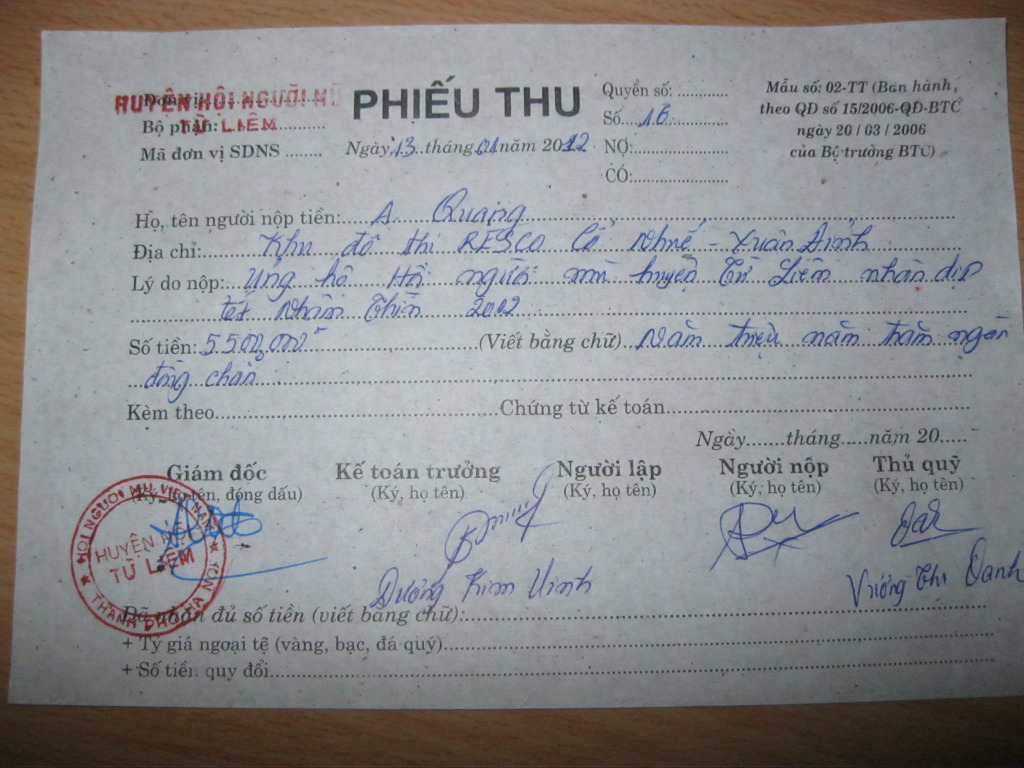 HUYỆN HỘI NGƯỜI MÙ
TỪ LIÊM
Đơn vị:
Bộ phận:
Mã đơn vị SDNS ........
PHIẾU THU
Ngày 13 tháng 01 năm 2012
Quyển số: ............
Số 16
NỢ:
CÓ:
Mẫu số: 02-TT (Ban hành
theo QD số 15/2006-QĐ-BTC
ngày 20 / 03 / 2006
của Bộ trưởng BTC)
Họ, tên người nộp tiền: A. Quang
Địa chỉ: Khu đô thị RESCO Cổ Nhuế - Xuân Đỉnh
Lý do nộp: Ủng hộ Hội người mù huyện Từ Liêm nhân dịp
tết Nhâm Thìn 2012
Số tiền: 5.500,000đ (Viết bằng chữ) Năm triệu năm trăm ngàn
đồng chẵn
Kèm theo Chứng từ kế toán
Ngày.......tháng.....năm 20.....
Giám đốc Kế toán trưởng Người lập Người nộp Thủ quỹ
(Ký, họ tên, đóng dấu) (Ký, họ tên) (Ký, họ tên) (Ký, họ tên) (Ký, họ tên)
HỘI NGƯỜI MÙ VIỆT NAM
HUYỆN HỘI
TỪ LIÊM
THÀNH PHỐ HÀ NỘI
Dương Kim Vinh
Vương Thị Oanh
Đã nhận đủ số tiền (viết bằng chữ):
+ Tỷ giá ngoại tệ (vàng, bạc, đá quý)
+ Số tiền quy đổi